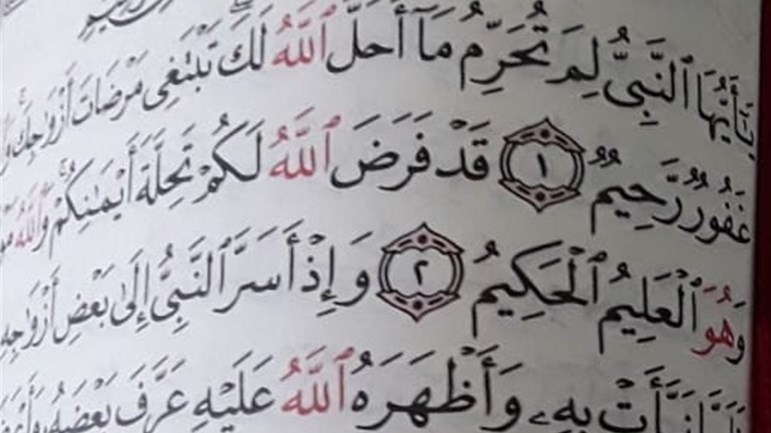 يَٰٓأَيُّهَا ٱلنَّبِىُّ لِمَ تُحَرِّمُ مَآ أَحَلَّ ٱللَّهُ لَكَ تَبْتَغِى مَرْضَاتَ أَزْوَٰجِكَ
غَفُورٌ رَّحِيمٌ ١ قَدْ فَرَضَ ٱللَّهُ لَكُمْ تَحِلَّةَ أَيْمَٰنِكُمْ وَٱللَّهُ
وَهُوَ ٱلْعَلِيمُ ٱلْحَكِيمُ ٢ وَإِذْ أَسَرَّ ٱلنَّبِىُّ إِلَىٰ بَعْضِ أَزْوَٰجِهِ
نَبَّأَتْ بِهِۦ وَأَظْهَرَهُ ٱللَّهُ عَلَيْهِ عَرَّفَ بَعْضَهُۥ